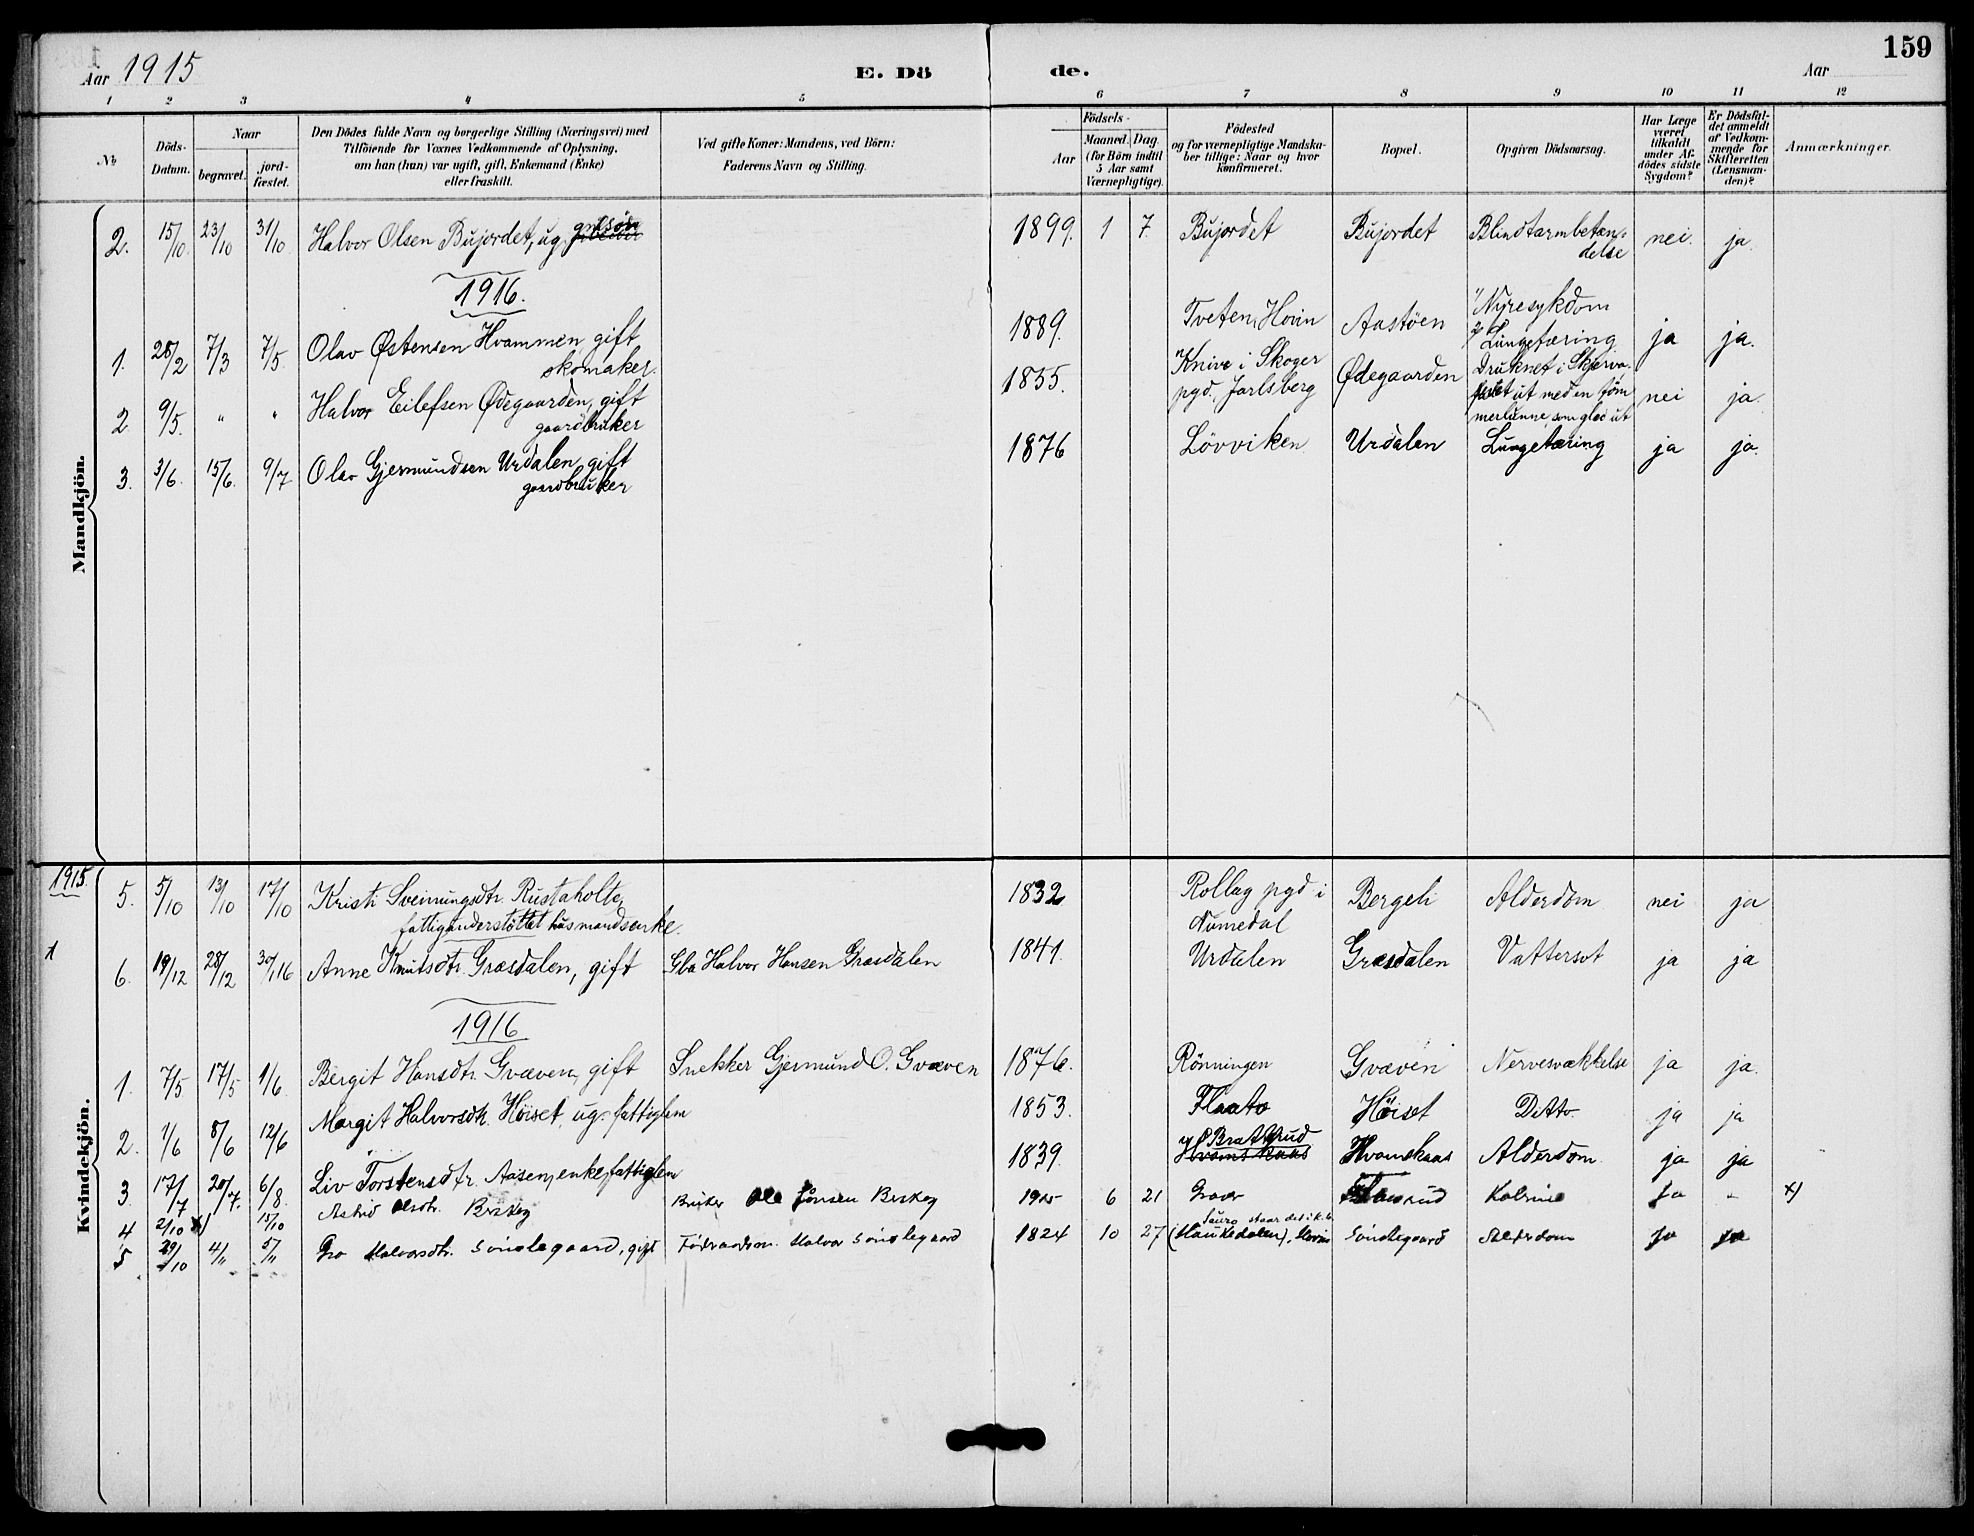 Aar 1915
E. Dö
de.
Aar
159
1 2 3 4 5 6 7 8 9 10 11 12
№
Döds-Datum.
Naar
begravet.
jord-fæstet.
Den Dödes fulde Navn og borgerlige Stilling (Næringsvei) med
Tilföiende for Voxnes Vedkommende af Oplysning,
om han (hun) var ugift, gift, Enkemand (Enke)
eller fraskilt.
Ved gifte Koner: Mandens, ved Börn:
Faderens Navn og Stilling.
Födsels-
Aar
Maaned. Dag.
(for Börn indtil
5 Aar samt
Værnepligtige).
Födested
og for værnepligtige Mandska-
ber tillige: Naar og hvor
konfirmeret.
Bopæl.
Opgiven Dödsaarsag.
Har Læge
været
tilkaldt
under Af-
dödes sidste
Sygdom?
Er Dödsfal-
det anmeldt
af Vedkom-
mende for
Skifteretten
(Lensman-
den)?
Anmærkninger.
Mandkjön.
2. 15/10 23/10 31/10 Halvor Olsen Bujordet, ug. 1899. 1 7. Bujordet Bujordet Blindtarmbetæn-
delse nei. ja.
1916.
1. 28/2 7/3 7/5. Olav Østensen Hvammen, gift 1889. Tveten, Hovin Aastöen 1/ Nyresykdom
skomaker. 2/ Lungetæring ja ja.
2 9/5. " " Halvor Eilefsen Ødegaarden, gift 1855. Knive i Skoger Ødegaarden Druknet i Skjerva.
gaardbruker pgd. Jarlsberg ut med en töm nei ja.
merlunne, som gled ut
3. 3/6. 15/6. 9/7 Olav Gjermundsen Urdalen, gift 1876 Lövviken Urdalen Lungetæring ja ja.
gaardbruker
Kvindekjön.
1915.
5. 5/10 13/10 17/10 Kristi Sveinungsdtr. Rustaholte, 1832 Rollag pgd i Bergeli Alderdom nei ja
fattigunderstöttet husmandsenke. Numedal
x
6. 19/12 28/12 30/1 16 Anne Knutsdtr. Græsdalen, gift Gbr. Halvor Hansen Græsdalen 1841. Urdalen Græsdalen Vattersot ja ja
1916
1. 7/5 17/5 1/6 Bergit Hansdtr. Gvæven, gift Snekker Gjermund O. Gvæven 1876. Rönningen Gvæven Nervesvækkelse ja ja.
2. 1/6 8/6 12/6 Margit Halvorsdtr. Höiset, ug. fattiglem 1853. Flaato Höiset Ditto ja ja
3 17/7 20/7. 6/8. Liv Torstensdtr. Aasen, enke, fattiglem 1839. Brattrud Hvamskaas Alderdom. ja ja
4 2/10 x) 15/10 Astrid Olsdtr. Bruker Ole Jönsen 1915 6 21 ja - x)
5 29/10 4/11 5/11 Gro Halvorsdtr. Sönstegaard, gift Födraadsm. Halvor Sönstegaard 1824 10 27 (Haukedalen), Hovin Sönstegaard Alderdom ja ja
staar det i k.b.